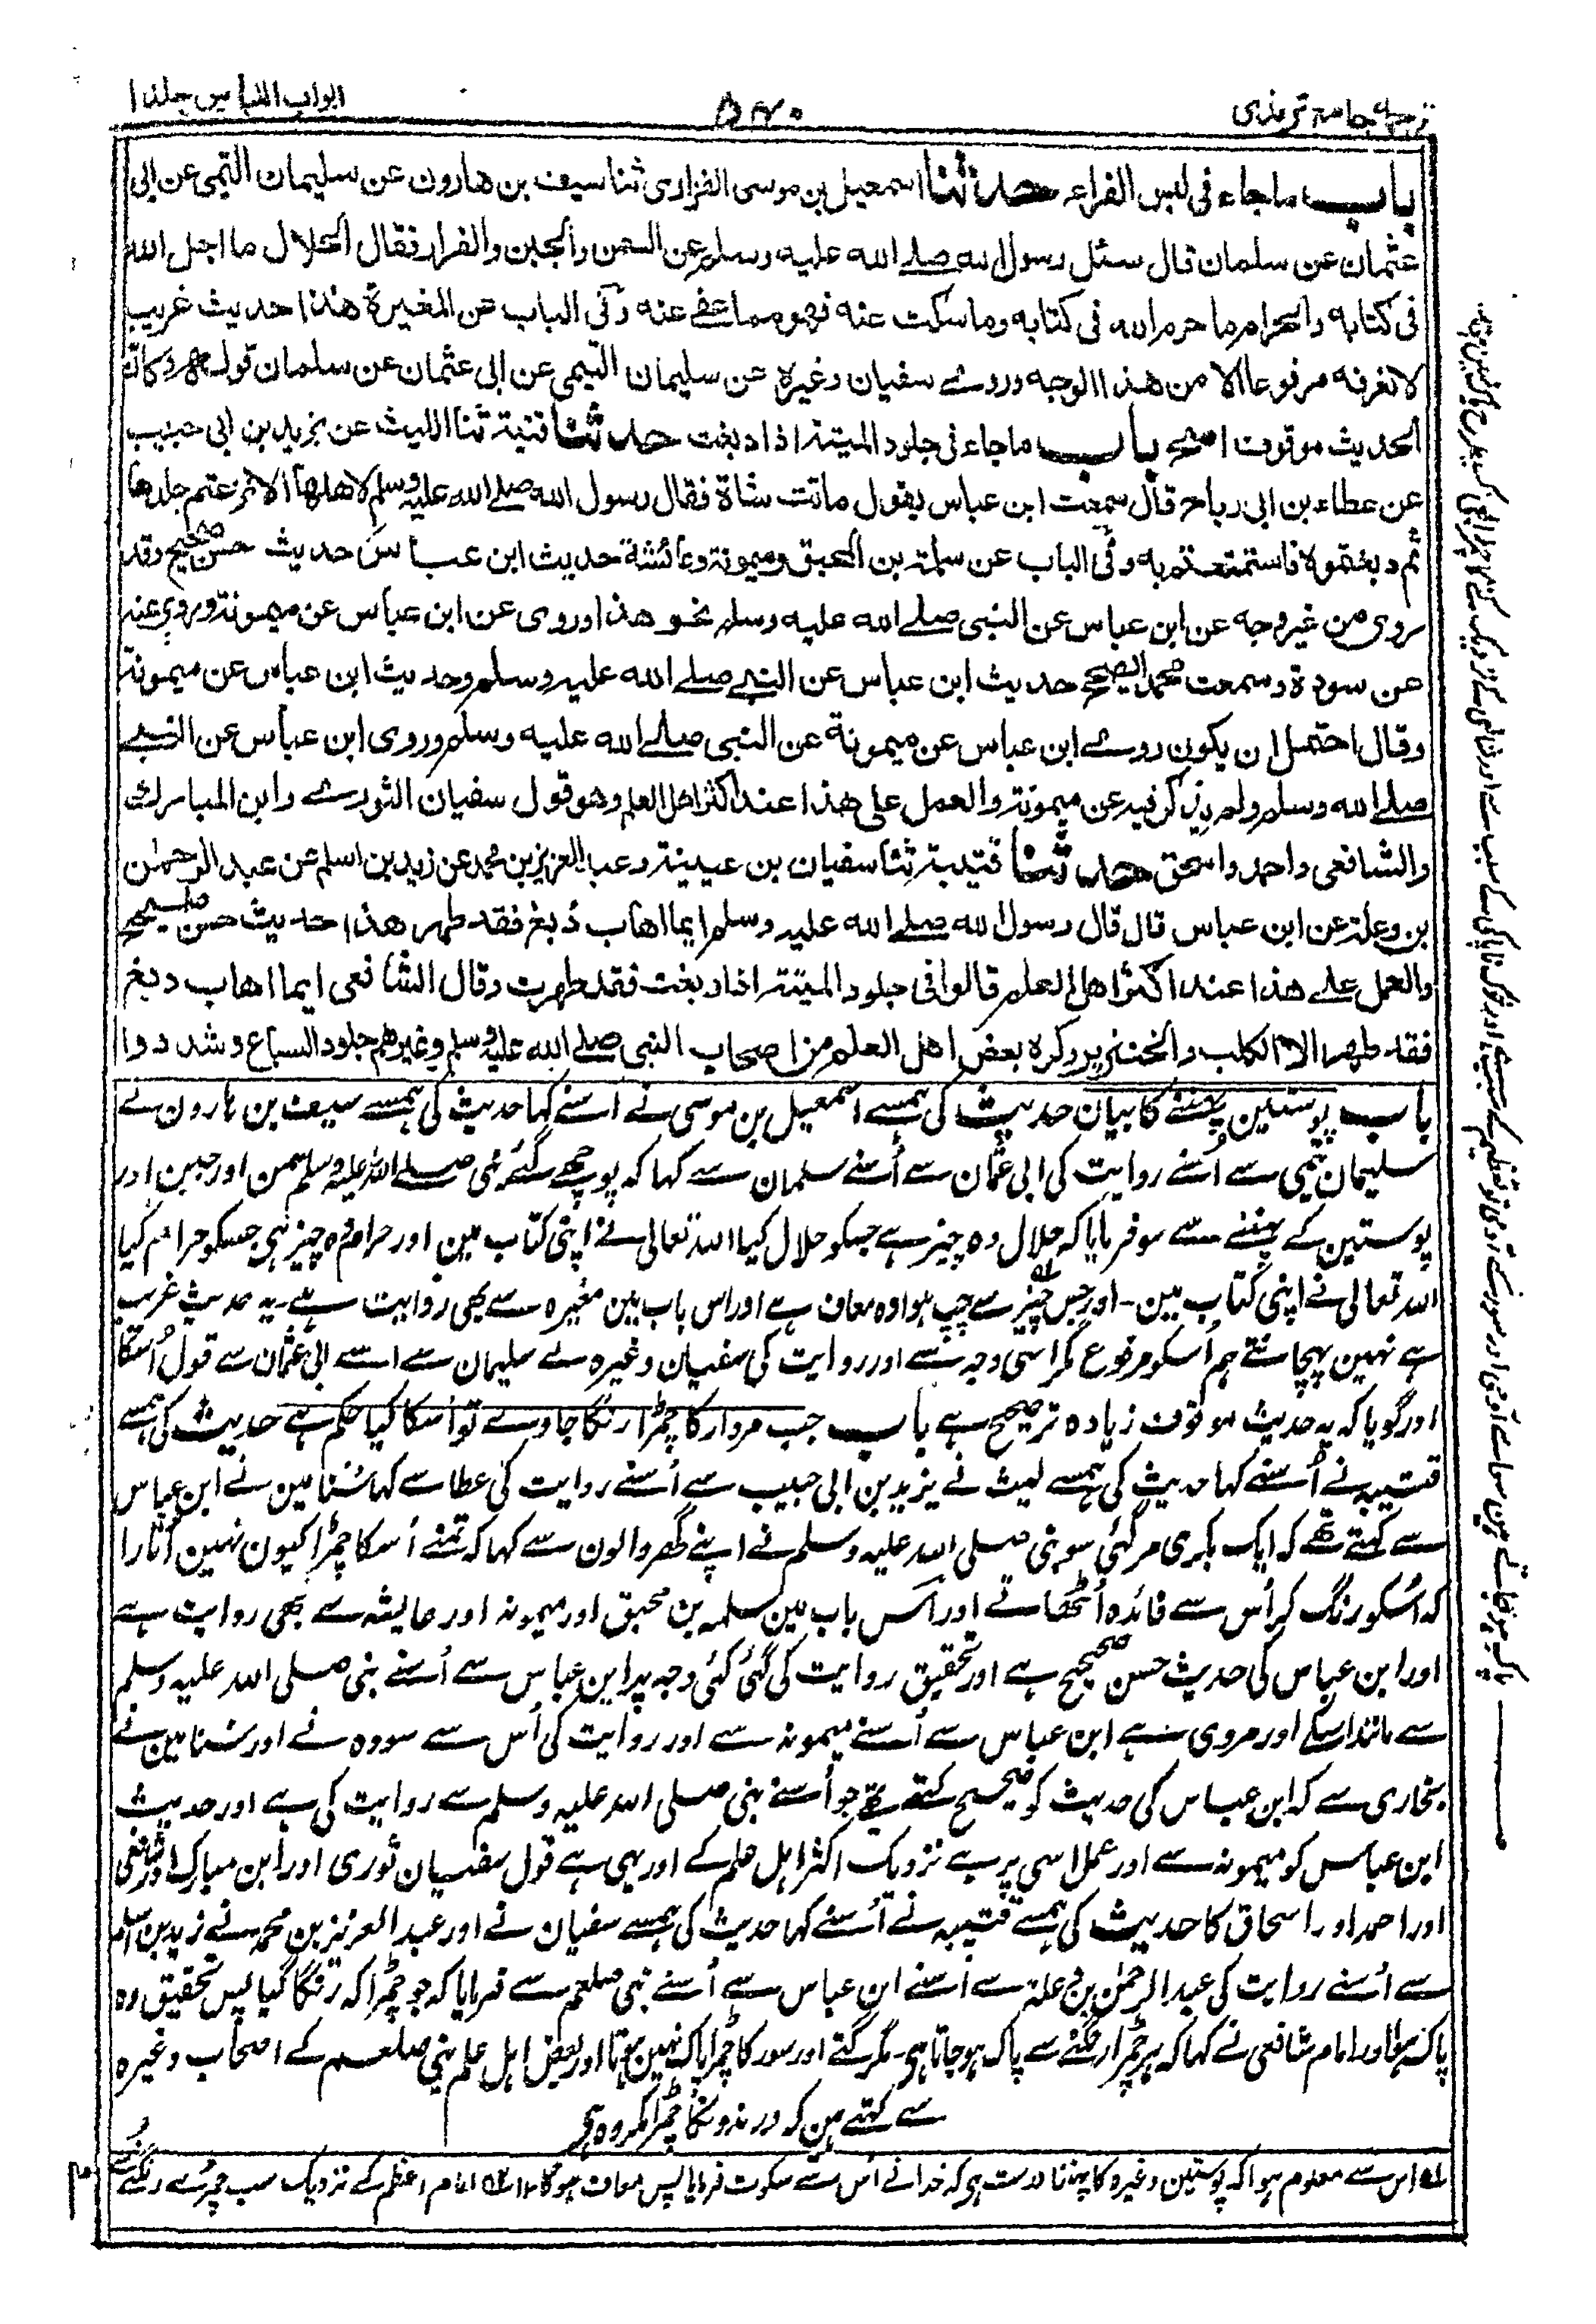 ترجمہ جامع ترمذی
۵۴۰
ابواب اللباس جلد ۱
باب ماجاء فی لبس الفراء حدثنا اسمعیل بن موسی الفزاری ثنا سیف بن هارون عن سلیمان التیمی عن ابی
عثمان عن سلمان قال سئل رسول الله صلے الله علیه وسلم عن السمن والجبن والفراء فقال الحلال ما احل الله
فی کتابه والحرام ما حرم الله فی کتابه وما سکت عنه فهو مما عفی عنه وفی الباب عن المغیرة هذا حدیث غریب
لا نعرفه مرفوعا الا من هذا الوجه وروے سفیان وغیره عن سلیمان التیمی عن ابی عثمان عن سلمان قوله وکان
الحدیث موقوف اصح باب ماجاء فی جلود المیتة اذا دبغت حدثنا قتیبة ثنا اللیث عن یزید بن ابی حبیب
عن عطاء بن ابی رباح قال سمعت ابن عباس یقول ماتت شاة فقال رسول الله صلے الله علیه وسلم لاهلها الا نزعتم جلدها
ثم دبغتموه فاستمتعتم به وفی الباب عن سلمة بن المحبق ومیمونة وعائشة حدیث ابن عباس حدیث حسن صحیح وقد
روی من غیر وجه عن ابن عباس عن النبی صلے الله علیه وسلم نحو هذا وروی عن ابن عباس عن میمونة وروی عنه
عن سودة وسمعت محمد الصحیح حدیث ابن عباس عن النبی صلے الله علیه وسلم وحدیث ابن عباس عن میمونة
وقال احتمل ان یکون روے ابن عباس عن میمونة عن النبی صلے الله علیه وسلم وروی ابن عباس عن النبی
صلے الله وسلم ولم یذکر فیه عن میمونة والعمل علی هذا عند اکثر اهل العلم وهو قول سفیان الثورے وابن المبارک
والشافعی واحمد واسحق حدثنا قتیبة ثنا سفیان بن عیینة وعبد العزیز بن محمد عن زید بن اسلم عن عبد الرحمن
بن وعلة عن ابن عباس قال قال رسول الله صلے الله علیه وسلم ایما اهاب دُبغ فقد طهر هذا حدیث حسن صحیح
والعمل علے هذا عند اکثر اهل العلم قالوا فی جلود المیتة اذا دبغت فقد طهرت وقال الشافعی ایما اهاب دبغ
فقد طهر الا الکلب والخنزیر وکره بعض اهل العلم من اصحاب النبی صلے الله علیه وسلم وغیرهم جلود السباع وشددوا
باب پوستین پہننے کا بیان حدیث کی ہمسے اسمعیل بن موسی نے اُسنے کہا حدیث کی ہمسے سیف بن ہارون نے
سلیمان تیمی سے اُسنے روایت کی ابی عثمان سے اُسنے سلمان سے کہا کہ پوچھے گئے نبی صلے اللہ علیہ وسلم سمن اور جبن اور
پوستین کے پہننے سے سو فرمایا کہ حلال وہ چیز ہے جسکو حلال کیا اللہ تعالی نے اپنی کتاب مین اور حرام وہ چیز ہی جسکو حرام کیا
اللہ تعالی نے اپنی کتاب مین۔ اور جس چیز سے چپ ہوا وہ معاف ہے اور اس باب مین مغیرہ سے بھی روایت ہے۔ یہ حدیث غریب
ہے نہین پہچانتے ہم اُسکو مرفوع مگر اسی وجہ سے اور روایت کی سفیان وغیرہ نے سلیمان سے اُسنے ابی عثمان سے قول اُسکا
اور گویا کہ یہ حدیث موقوف زیادہ تر صحیح ہے باب جب مردار کا چمڑا رنگا جاوے تو اُسکا کیا حکم ہے حدیث کی ہمسے
قتیبہ نے اُسنے کہا حدیث کی ہمسے لیث نے یزید بن ابی حبیب سے اُسنے روایت کی عطا سے کہا سُنا مین نے ابن عباس
سے کہتے تھے کہ ایک بکری مر گئی سو نبی صلی اللہ علیہ وسلم نے اپنے گھر والون سے کہا کہ تمنے اُسکا چمڑا کیون نہین اُتارا
کہ اُسکو رنگ کر اُس سے فائدہ اُٹھاتے اور اس باب مین سلمہ بن محبق اور میمونہ اور عایشہ سے بھی روایت ہے
اور ابن عباس کی حدیث حسن صحیح ہے اور تحقیق روایت کی گئی کئی وجہ پر ابن عباس سے اُسنے نبی صلی اللہ علیہ وسلم
سے مانند اسکے اور مروی ہے ابن عباس سے اُسنے میمونہ سے اور روایت کی اُس سے سودہ نے اور سُنا مین نے
بخاری سے کہ ابن عباس کی حدیث کو صحیح کہتے تھے جو اُسنے نبی صلی اللہ علیہ وسلم سے روایت کی ہے اور حدیث
ابن عباس کو میمونہ سے اور عمل اسی پر ہے نزدیک اکثر اہل علم کے اور یہی ہے قول سفیان ثوری اور ابن مبارک اور شافعی
اور احمد اور اسحاق کا حدیث کی ہمسے قتیبہ نے اُسنے کہا حدیث کی ہمسے سفیان نے اور عبد العزیز بن محمد نے زید بن اسلم
سے اُسنے روایت کی عبد الرحمٰن بن وعلہ سے اُسنے ابن عباس سے اُسنے نبی صلعم سے فرمایا کہ جو چمڑا کہ رنگا گیا پس تحقیق وہ
پاک ہوا اور امام شافعی نے کہا کہ ہر چمڑا رنگنے سے پاک ہو جاتا ہی۔ مگر کتے اور سور کا چمڑا پاک نہین ہوتا اور بعض اہل علم نبی صلعم کے اصحاب وغیرہ
سے کہتے ہین کہ درندونکا چمڑا مکروہ ہے
۱؎ اس سے معلوم ہوا کہ پوستین وغیرہ کا پہننا درست ہی کہ خدا نے اُس سے سکوت فرمایا پس معاف ہوگا ۱۲ ۲؎ امام اعظم کے نزدیک سب چمڑے رنگنے سے